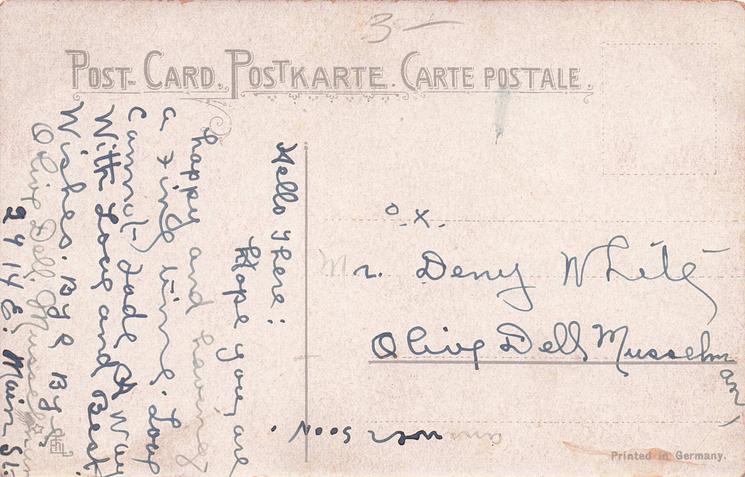 3-
POST-CARD. POSTKARTE. CARTE POSTALE.
o.x.
Mr. Deny White
Olive Dell Musselman
answer soon.
Printed in Germany.
Hello There:
Hope you are
happy and having
a fine time. Love
cannot fade A Way
With Love and Best
Wishes. By & Bye
Olive Dell Musselman
2414 E. Main St.